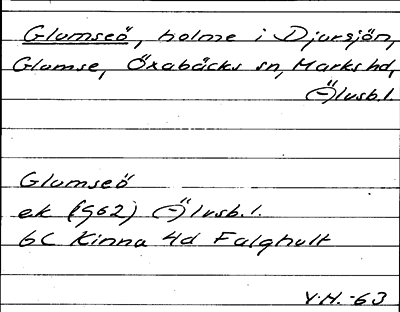 Glumseö, holme i Djursjön,
Glumse, Öxabäcks sn, Marks hd,
Älvsb. l.
Glumseö
ek (1962) Älvsb. l.
6C Kinna 4d Falghult
V.H. -63